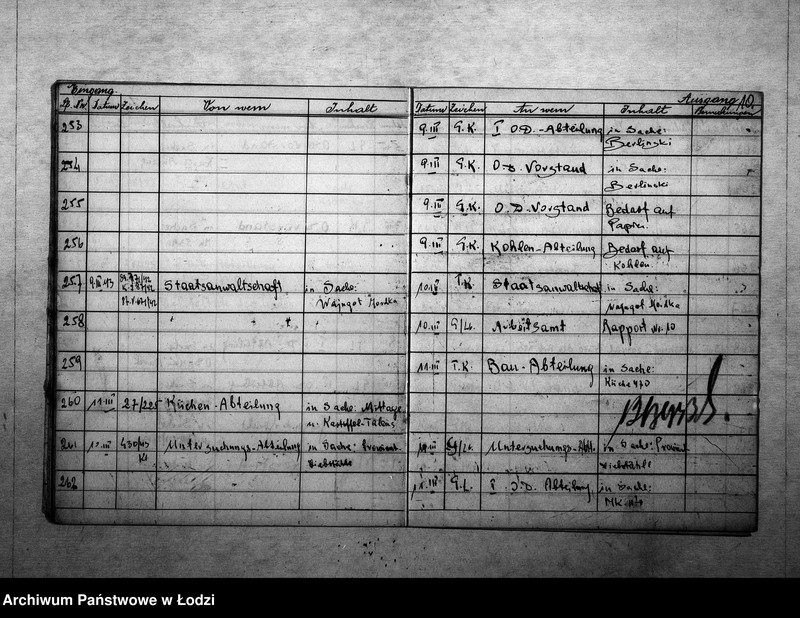 Eingang.
Ausgang 10.
Datum Zeichen Von wem Inhalt Datum Zeichen An wem Inhalt Bemerkungen
253 9.III G.K. I O.D.-Abteilung in Sache:
Berlinski
254 9.III G.K. O.D. Vorstand in Sache:
Berlinski
255 9.III G.K. O.D. Vorstand Bedarf auf
Papier.
256 9.III G.K. Kohlen-Abteilung Bedarf auf
Kohlen.
257 9.III 43 Staatsanwaltschaft in Sache: 10.III T.K. Staatsanwaltschaft in Sache:
Wajngot Mordka Wajngot Mordka
258 10.III Arbeitsamt Rapport Nr. 10
259 11.III T.K. Bau-Abteilung in Sache:
Küche 470
260 11.III 27/225 Küchen-Abteilung in Sache: Mittage
u. Kartoffel-
261 430/43 Untersuchungs-Abteilung in Sache: Proviant Untersuchungs-Abt. in Sache: Proviant
diebstähle diebstähle
262 I O.D. Abteilung in Sache:
Archiwum Państwowe w Łodzi